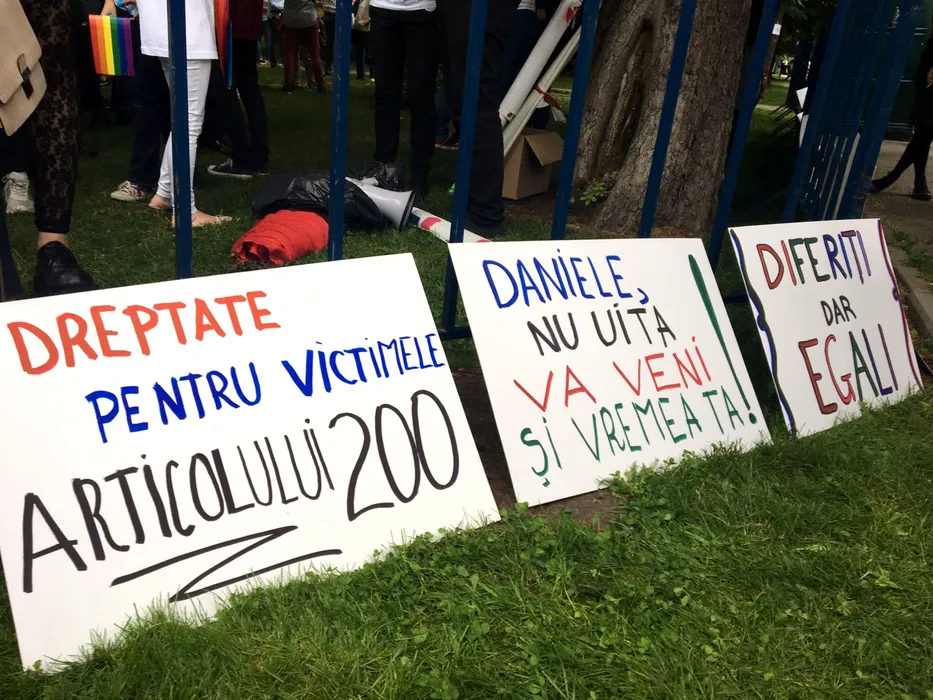 DREPTATE
PENTRU VICTIMELE
ARTICOLULUI 200
DANIELE,
NU UITA
VA VENI
ȘI VREMEA TA!
DIFERIȚI
DAR
EGALI